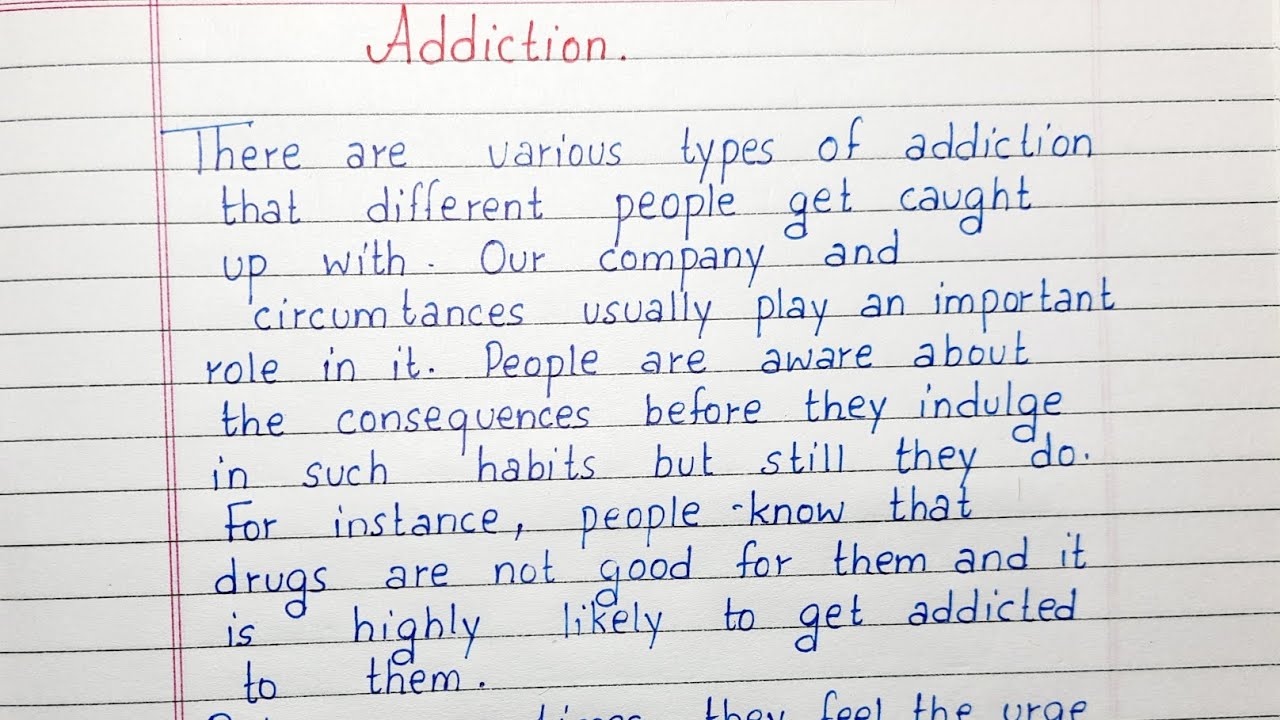 Addiction.
There are various types of addiction
that different people get caught
up with. Our company and
circumtances usually play an important
role in it. People are aware about
the consequences before they indulge
in such habits but still they do.
For instance, people know that
drugs are not good for them and it
is highly likely to get addicted
to them.
they feel the urge